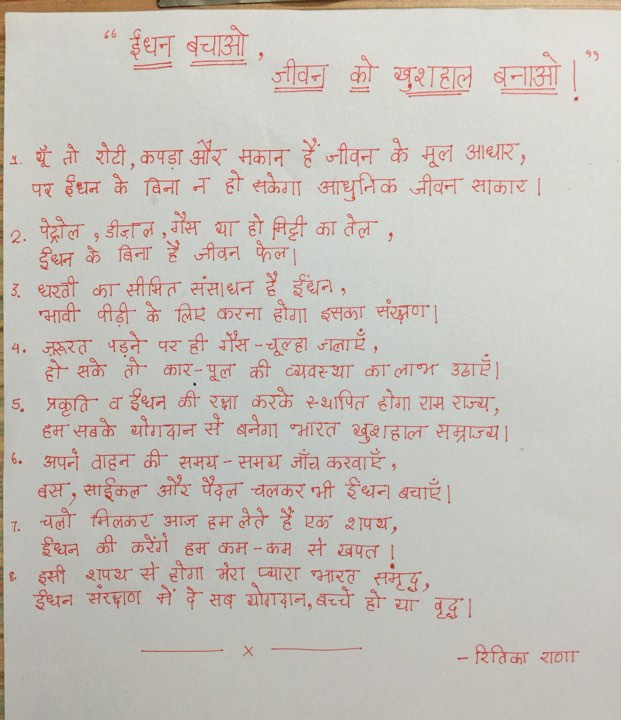 “ ईंधन बचाओ,
जीवन को खुशहाल बनाओ! ”
1. यूँ तो रोटी, कपड़ा और मकान हैं जीवन के मूल आधार,
पर ईंधन के बिना न हो सकेगा आधुनिक जीवन साकार।
2. पेट्रोल, डीज़ल, गैस या हो मिट्टी का तेल,
ईंधन के बिना है जीवन फेल।
3. धरती का सीमित संसाधन है ईंधन,
भावी पीढ़ी के लिए करना होगा इसका संरक्षण।
4. ज़रूरत पड़ने पर ही गैस-चूल्हा जलाएँ,
हो सके तो कार-पूल की व्यवस्था का लाभ उठाएँ।
5. प्रकृति व ईंधन की रक्षा करके स्थापित होगा राम राज्य,
हम सबके योगदान से बनेगा भारत खुशहाल सम्राज्य।
6. अपने वाहन की समय-समय जाँच करवाएँ,
बस, साईकल और पैदल चलकर भी ईंधन बचाएँ।
7. चलो मिलकर आज हम लेते हैं एक शपथ,
ईंधन की करेंगे हम कम-कम से खपत।
8. इसी शपथ से होगा मेरा प्यारा भारत समृद्ध,
ईंधन संरक्षण में दे सब योगदान, बच्चे हो या वृद्ध।
x
- रितिका राणा